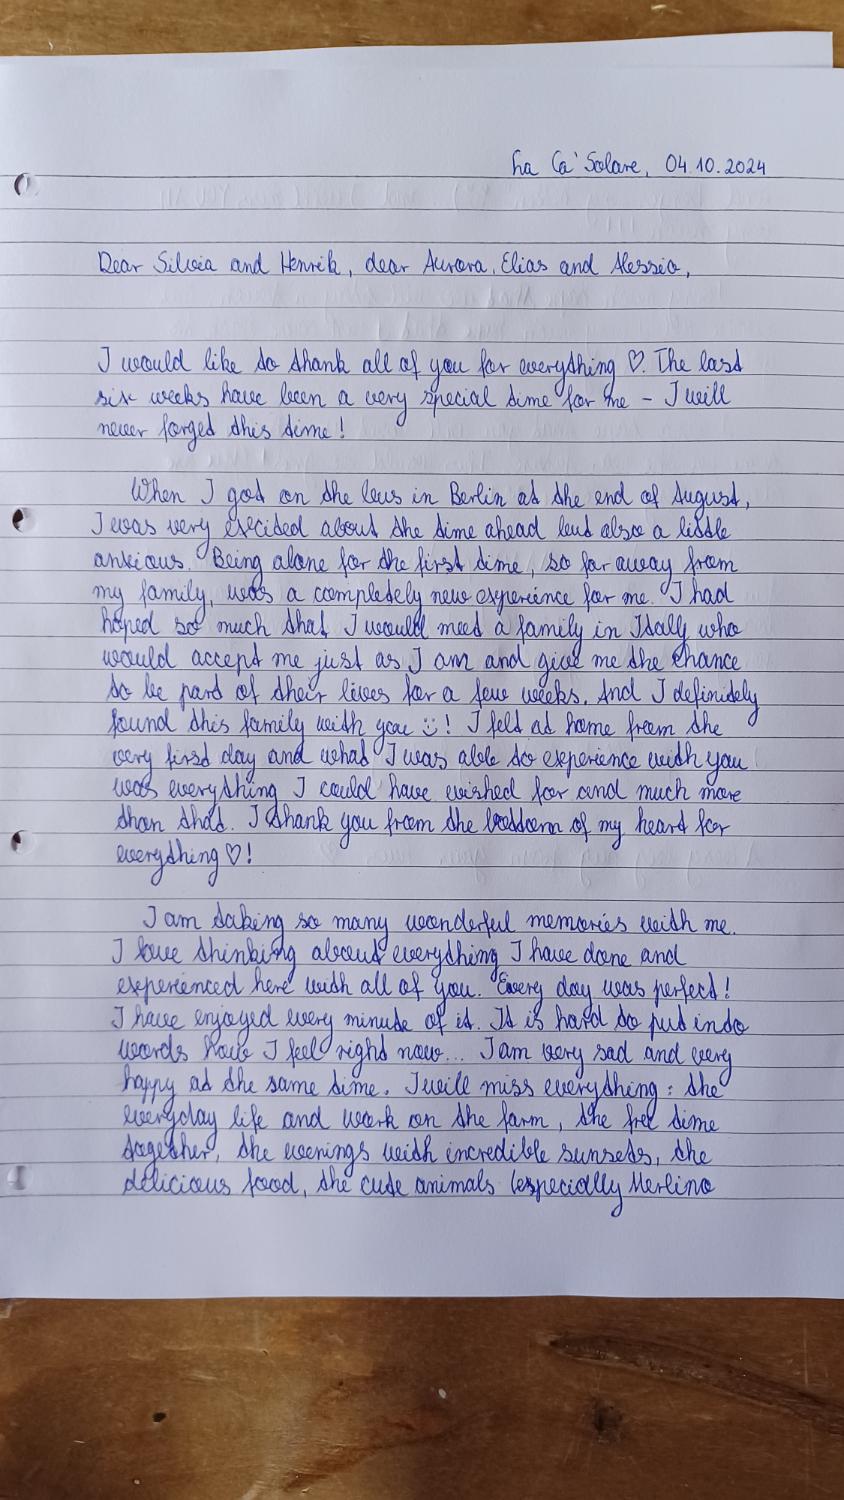 La Ca' Solare, 04.10.2024
Dear Silvia and Henrik, dear Aurora, Elias and Alessio,
I would like to thank all of you for everything ♡. The last
six weeks have been a very special time for me – I will
never forget this time!
When I got on the bus in Berlin at the end of August,
I was very excited about the time ahead but also a little
anxious. Being alone for the first time, so far away from
my family, was a completely new experience for me. I had
hoped so much that I would meet a family in Italy who
would accept me just as I am and give me the chance
to be part of their lives for a few weeks. And I definitely
found this family with you :)! I felt at home from the
very first day and what I was able to experience with you
was everything I could have wished for and much more
than that. I thank you from the bottom of my heart for
everything ♡!
I am taking so many wonderful memories with me.
I love thinking about everything I have done and
experienced here with all of you. Every day was perfect!
I have enjoyed every minute of it. It is hard to put into
words how I feel right now... I am very sad and very
happy at the same time. I will miss everything: the
everyday life and work on the farm, the free time
together, the evenings with incredible sunsets, the
delicious food, the cute animals (especially Merlino